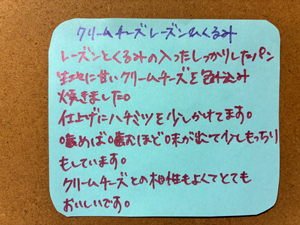 クリームチーズレーズンくるみ
レーズンとくるみの入ったしっかりしたパン
生地に甘いクリームチーズを包み込み
焼きました。
仕上げにハチミツを少しかけてます。
噛めば噛むほど味が出て少しもっちり
もしています。
クリームチーズとの相性もよくてとても
おいしいです。